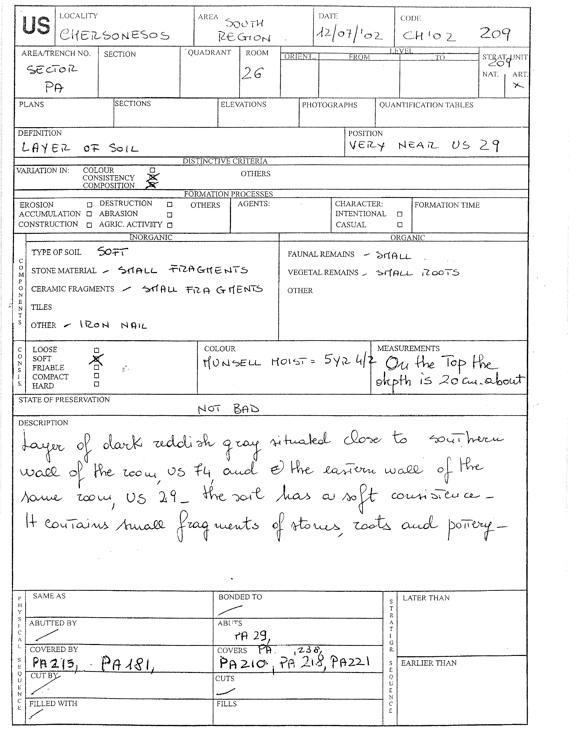 US
LOCALITY
CHERSONESOS
AREA SOUTH
REGION
DATE
12/07/'02
CODE
CH'02 209
AREA/TRENCH NO.
SECTOR
PA
SECTION
QUADRANT
ROOM
26
ORIENT.
LEVEL
FROM TO
STRAT. UNIT
209
NAT. ART.
x
PLANS
SECTIONS
ELEVATIONS
PHOTOGRAPHS
QUANTIFICATION TABLES
DEFINITION
LAYER OF SOIL
POSITION
VERY NEAR US 29
DISTINCTIVE CRITERIA
VARIATION IN: COLOUR
CONSISTENCY
COMPOSITION
OTHERS
FORMATION PROCESSES
EROSION DESTRUCTION OTHERS
ACCUMULATION ABRASION
CONSTRUCTION AGRIC. ACTIVITY
AGENTS:
CHARACTER:
INTENTIONAL
CASUAL
FORMATION TIME
COMPONENTS
INORGANIC
TYPE OF SOIL SOFT
STONE MATERIAL - SMALL FRAGMENTS
CERAMIC FRAGMENTS - SMALL FRAGMENTS
TILES
OTHER - IRON NAIL
ORGANIC
FAUNAL REMAINS - SMALL
VEGETAL REMAINS - SMALL ROOTS
OTHER
CONSIS.
LOOSE
SOFT
FRIABLE
COMPACT
HARD
COLOUR
MUNSELL MOIST = 5YR 4/2
MEASUREMENTS
On the Top the
depth is 20 cm. about
STATE OF PRESERVATION
NOT BAD
DESCRIPTION
Layer of dark reddish gray situated close to southern
wall of the room, US 74, and the eastern wall of the
same room, US 29_ the soil has a soft consistence_
It contains small fragments of stones, roots and pottery_
PHYSICAL SEQUENCE
SAME AS
BONDED TO
ABUTTED BY
ABUTS
PA 29,
COVERED BY
PA213, PA181,
COVERS PA ,238,
PA210, PA 218, PA221
CUT BY
CUTS
FILLED WITH
FILLS
STRATIGR. SEQUENCE
LATER THAN
EARLIER THAN